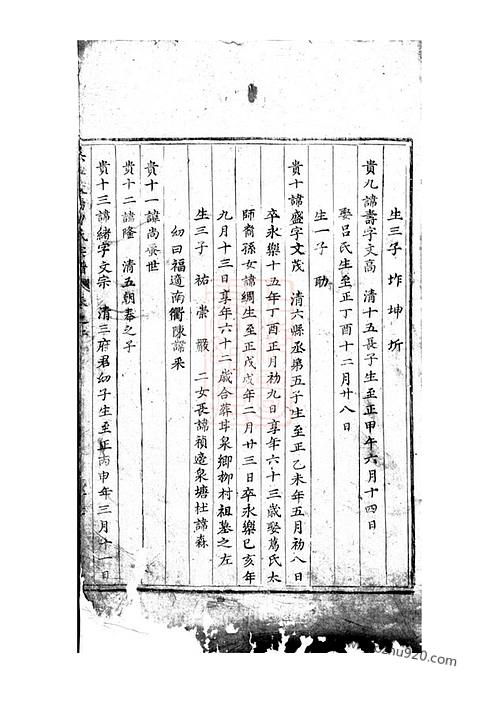 生三子 坤 圻
貴九諱壽字文高 清十五長子生至正甲午六月十四日
娶呂氏生至正丁酉十二月廿八日
生一子 助
貴十諱盛字文茂 清六縣丞第五子生至正乙未年五月初八日
卒永樂十五年丁酉正月初九日享年六十三歲娶葛氏太
師裔孫女諱綢生至正戊戌年二月廿三日卒永樂己亥年
九月十三日享年六十二歲合葬甘泉鄉柳村祖墓之左
生三子 祐 崇 嚴 二女長諱禎適泉塘杜諱森
幼曰福適南衢陳諱采
貴十一諱尚蚤世
貴十二諱隆 清五朝奉之子
貴十三諱緒字文宗 清三府君幼子生至正丙申年三月十一日
zhu920.com